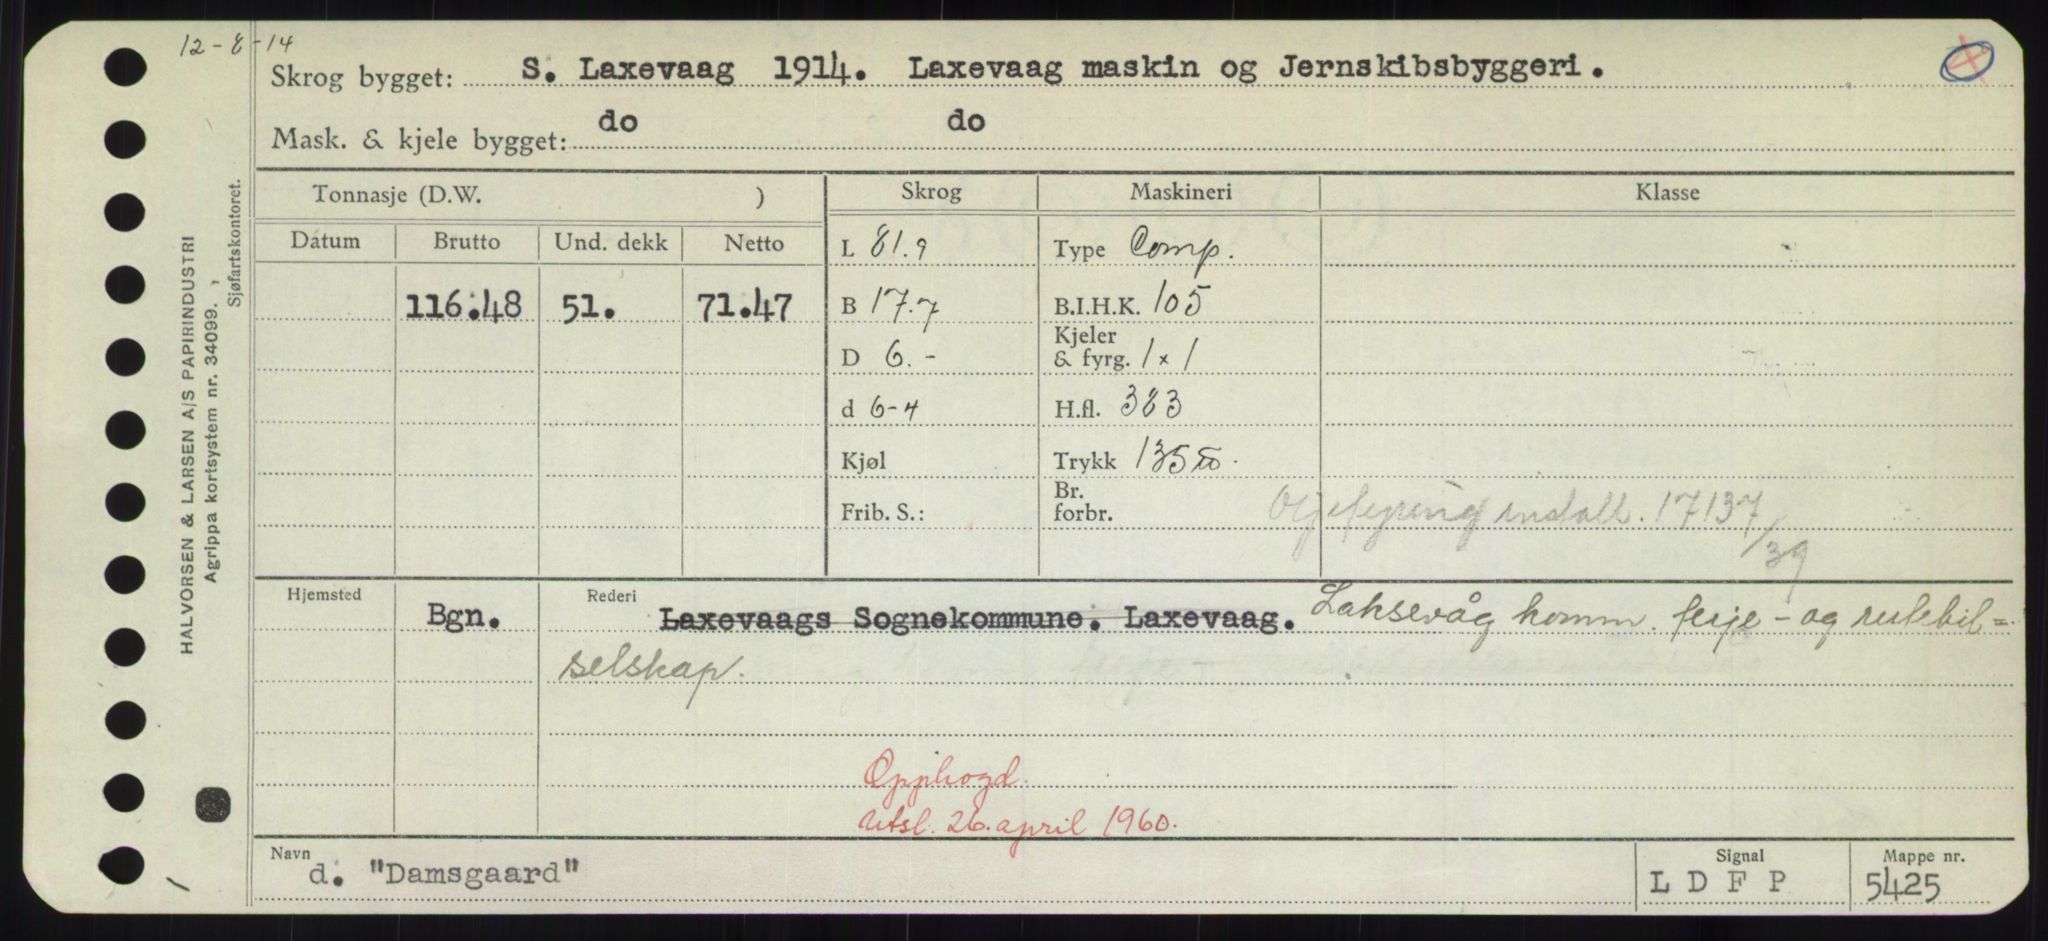 12-8-14
Skrog bygget: S. Laxevaag 1914. Laxevaag maskin og Jernskibsbyggeri.
Mask. & kjele bygget: do do
HALVORSEN & LARSEN A/S PAPIRINDUSTRI
Agrippa kortsystem nr. 34099.
Sjøfartskontoret.
Tonnasje (D.W. ) Skrog Maskineri Klasse
Datum Brutto Und. dekk Netto L 81.9 Type Comp.
116.48 51. 71.47 B 17.7 B.I.H.K. 105
Kjeler
D 6.- & fyrg. 1 x 1
d 6-4 H.fl. 383
Kjøl Trykk 135
Br.
Frib. S.: forbr. Oljefyring install. 17137/39
Hjemsted Bgn. Rederi Laxevaags Sognekommune. Laxevaag. Laksevåg komm. ferje- og rutebil=
selskap.
Opphogd.
Utsl. 26. april 1960.
Navn Signal Mappe nr.
d. "Damsgaard" L D F P 5425